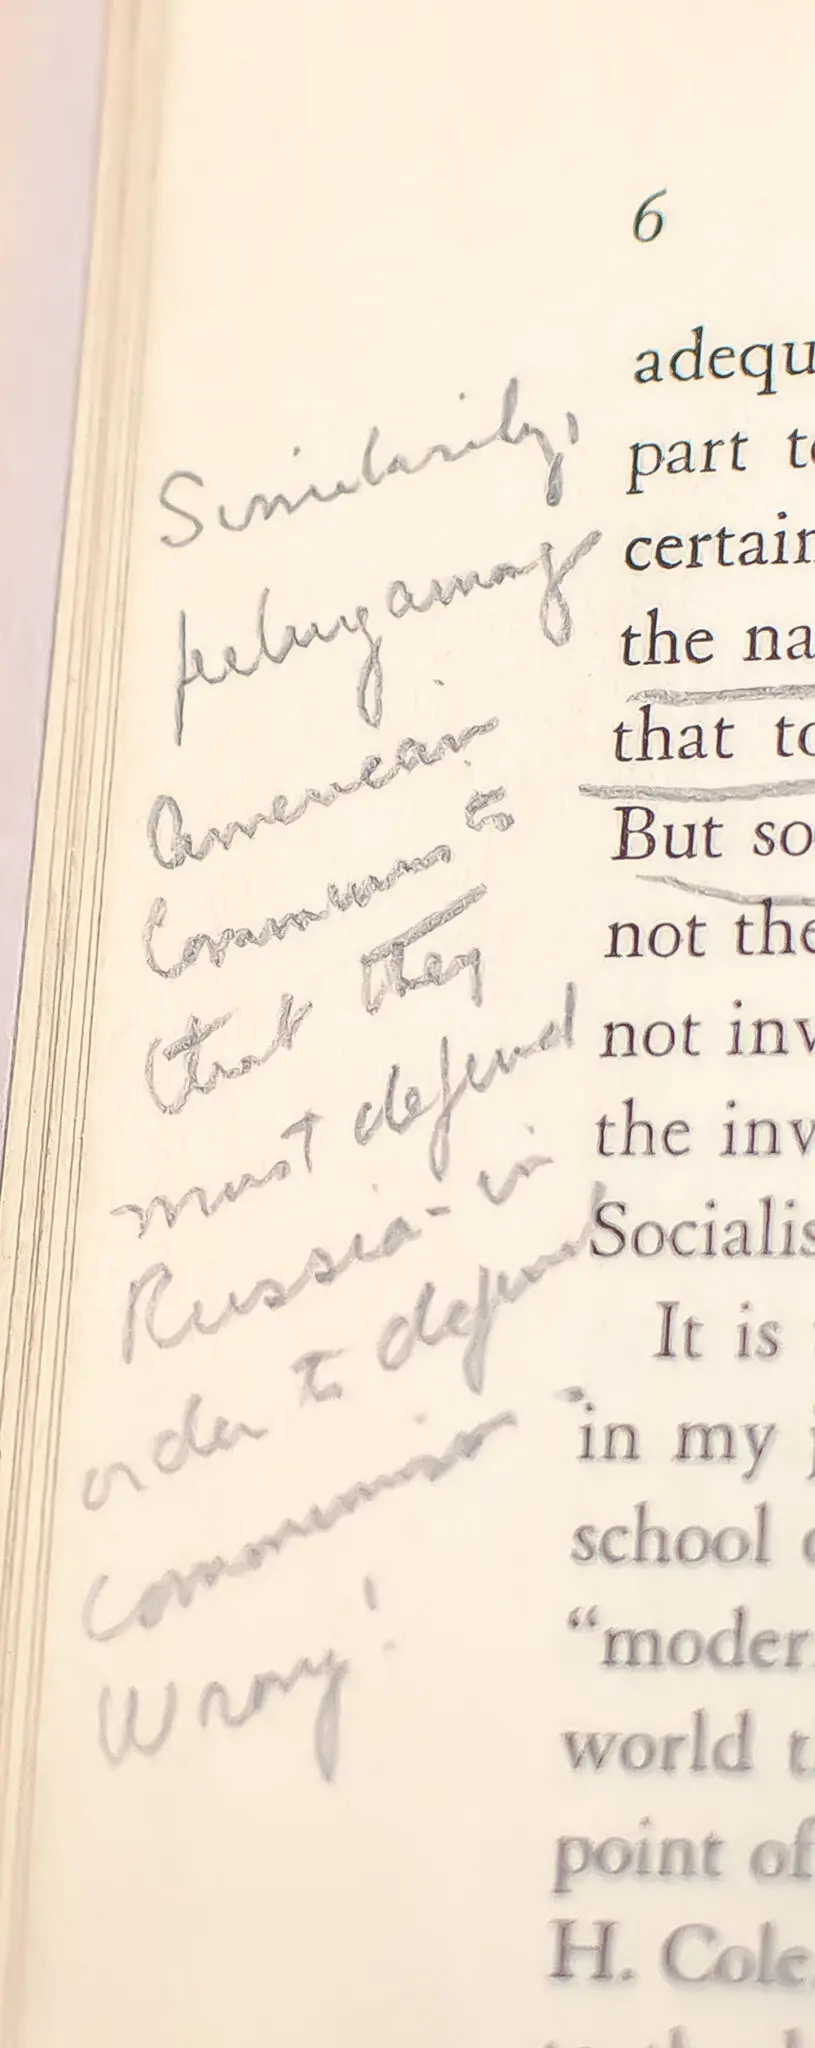 6
Similarly,
feeling among
American
Communists
that they
must defend
Russia - in
order to defend
Communism
Wrong!
adequ
part to
certain
the na
that to
But so
not the
not inv
the inv
Socialis
It is
in my j
school o
"moder
world th
point of
H. Cole